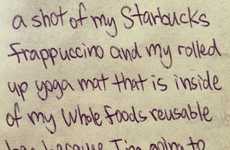 a shot of my Starbucks
frappuccino and my rolled
up yoga mat that is inside
of my Whole Foods reusable
bag because I'm going to